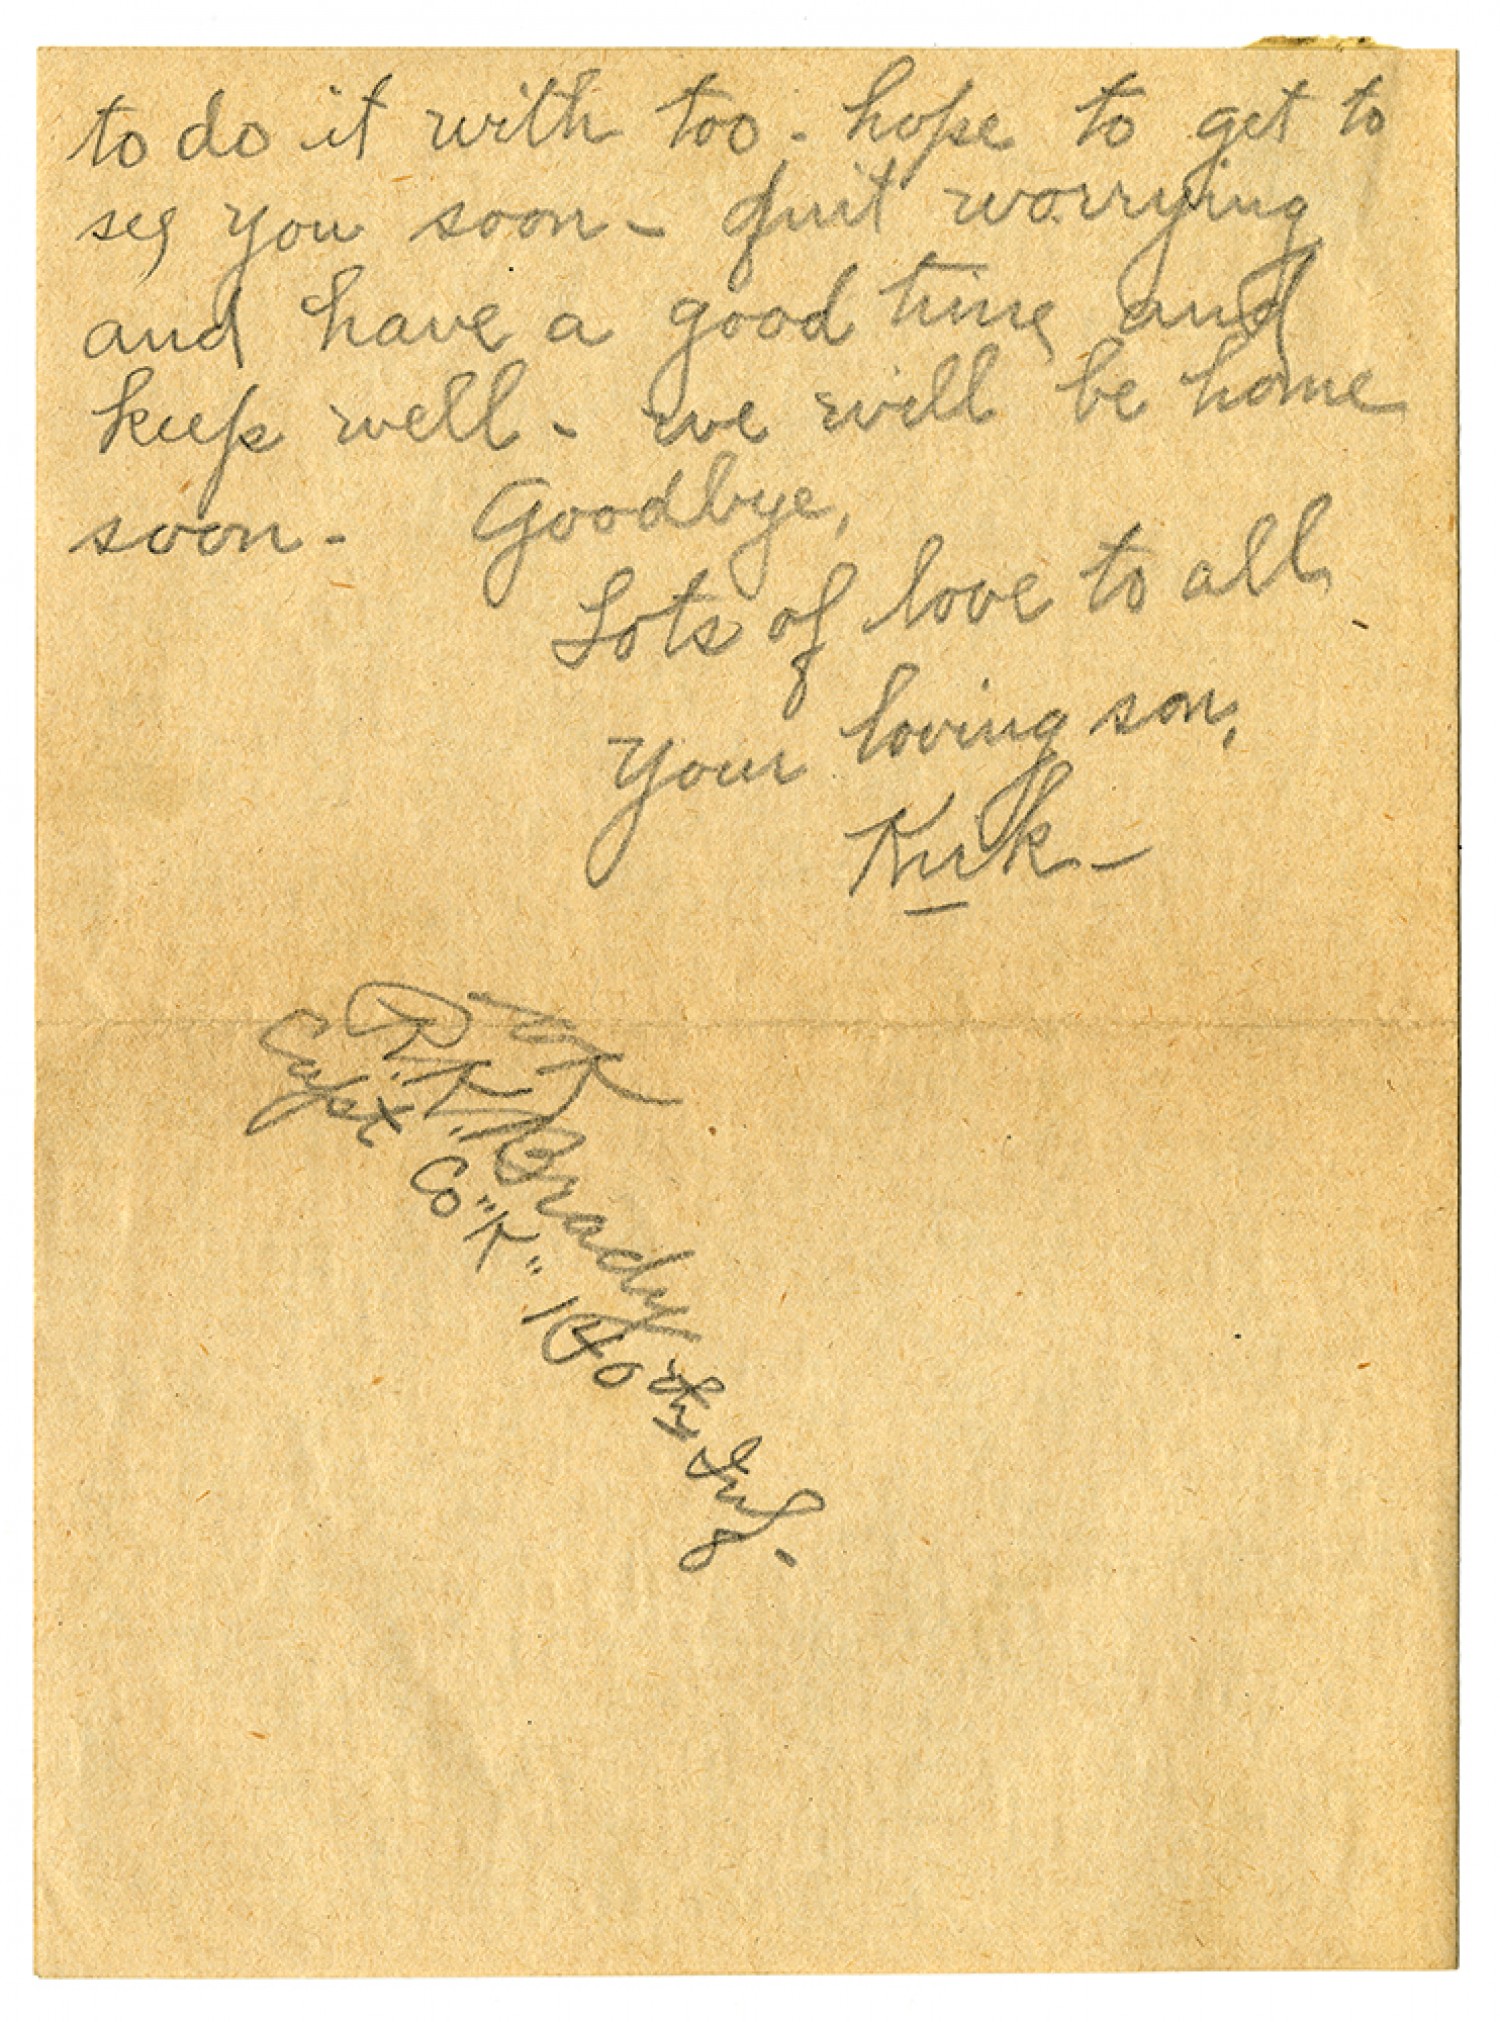 to do it with too - hope to get to
see you soon - quit worrying
and have a good time and
keep well - we will be home
soon - Goodbye,
Lots of love to all
Your loving son,
Kirk -
OK
R.K. Brady
Capt Co "K" 140th Inf. -